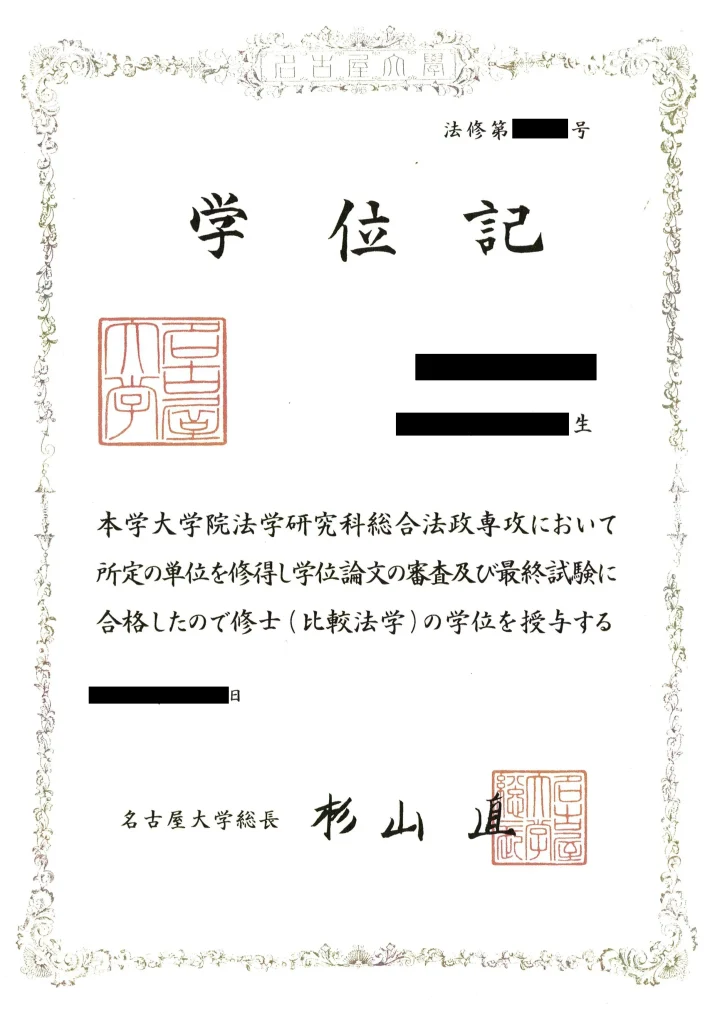 名古屋大學
法修第 号
学位記
名古屋大学
生
本学大学院法学研究科総合法政専攻において
所定の単位を修得し学位論文の審査及び最終試験に
合格したので修士(比較法学)の学位を授与する
日
名古屋大学総長 杉山 直
名古屋大学総長